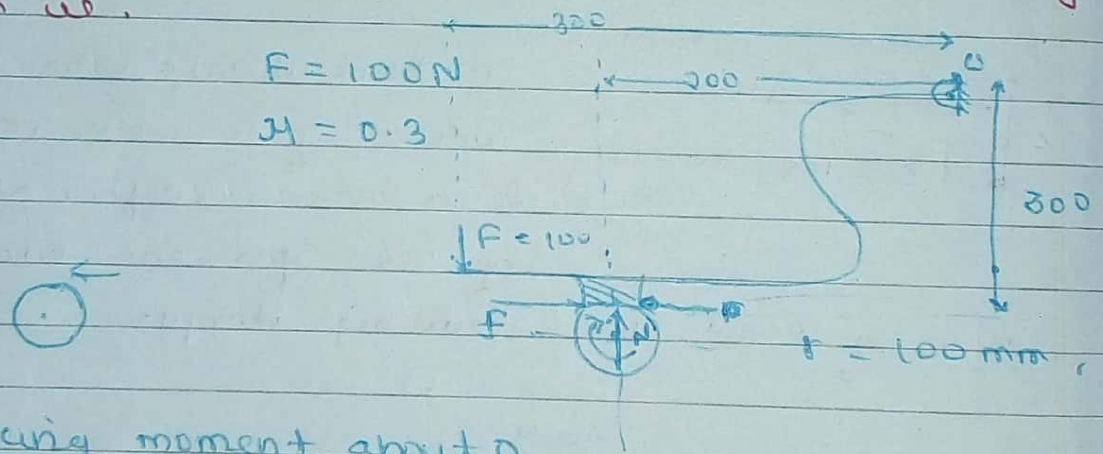 300
F = 100N
200
O
μ = 0.3
300
F = 100
F
N
r = 100mm,
moment about O